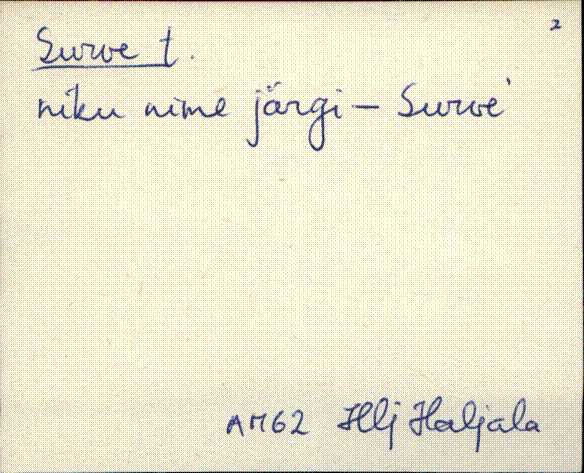 2
Surve t.
niku nime järgi – Surve'
AM62 Hlj Haljala